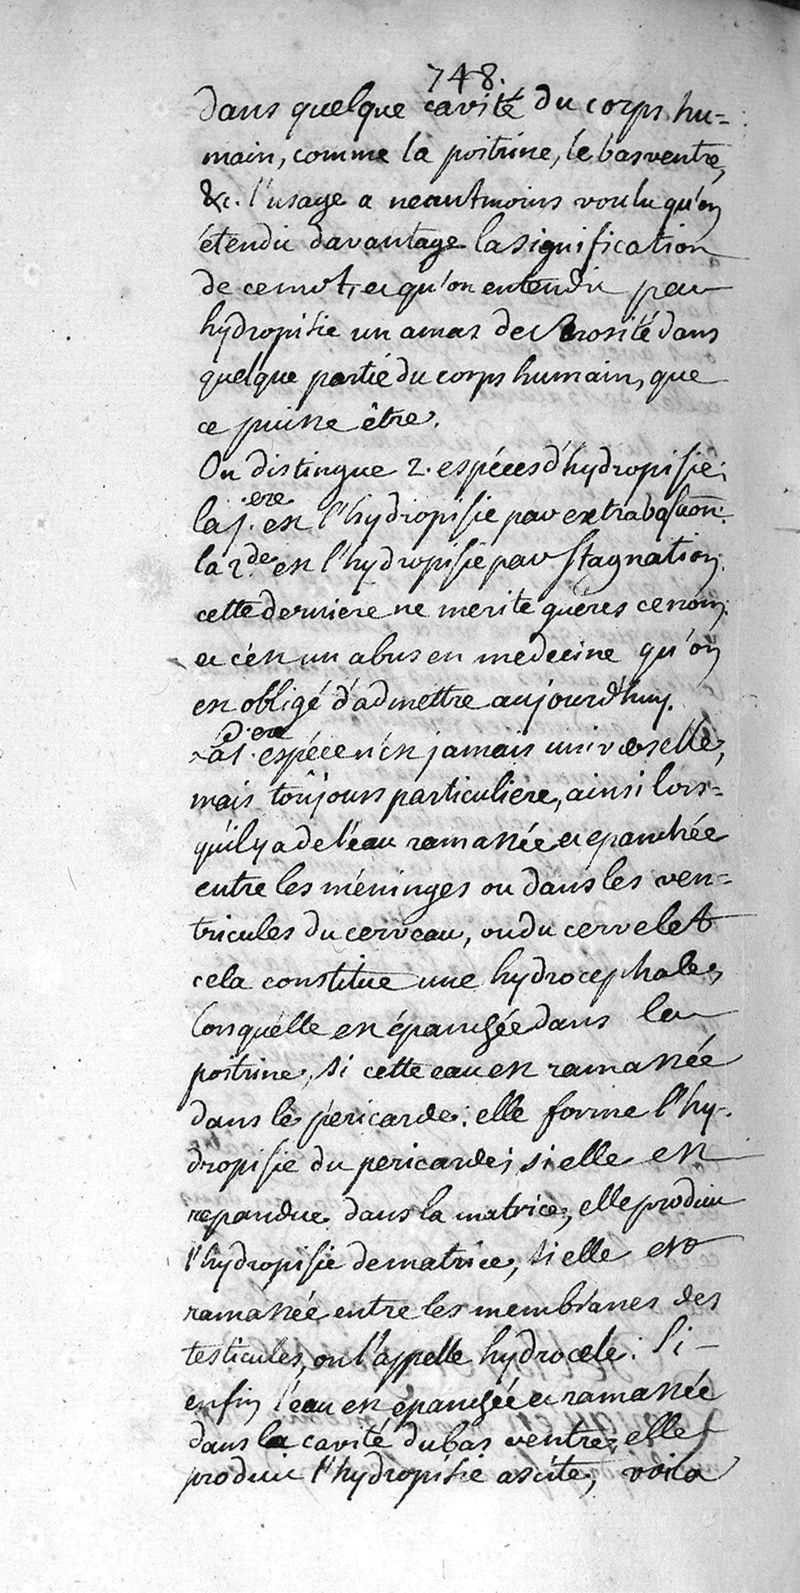 748.
dans quelque cavité du corps hu=
main, comme la poitrine, le bas ventre,
&c. l'usage a neantmoins voulu qu'on
étendit davantage la signification
de ce mot, et qu'on entendit par
hydropisie un amas de serosité dans
quelque partie du corps humain, que
ce puisse être.
On distingue 2. espéces d'hydropisie;
la 1.ere est l'hydropisie par extravasaõn:
la 2.de est l'hydropisie par stagnation,
cette derniere ne merite guéres ce nom;
et c'est un abus en medecine qu'on
est obligé d'admettre aujourd'huy.
La 1.ere espéce n'est jamais universelle,
mais toûjours particuliere, ainsi lors=
qu'il y a de l'eau ramassée et epanchée
entre les méninges ou dans les ven=
tricules du cerveau, ou du cervelet
cela constitue une hydrocephale,
lorsquélle est épanchée dans la
poitrine, si cette eau est ramassée
dans le pericarde: elle forme l'hy-
dropisie du pericarde; si elle est
repandue dans la matrice, elle produit
l'hydropisie de matrice, si elle est
ramassée entre les membranes des
testicules, on l'appelle hydrocele: si
enfin l'eau est epanchée et ramassée
dans la cavité du bas ventre, elle
produit l'hydropisie ascite, voila